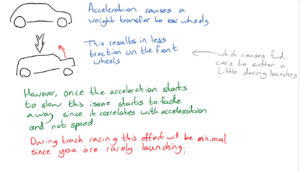 Acceleration causes a
weight transfer to rear wheels
This results in less
traction on the front
wheels
which causes fwd
cars to suffer a
little during launches
However, once the acceleration starts
to slow this issue starts to fade
away since it correlates with acceleration
and not speed.
During track racing this effect will be minimal
since you are rarely launching.